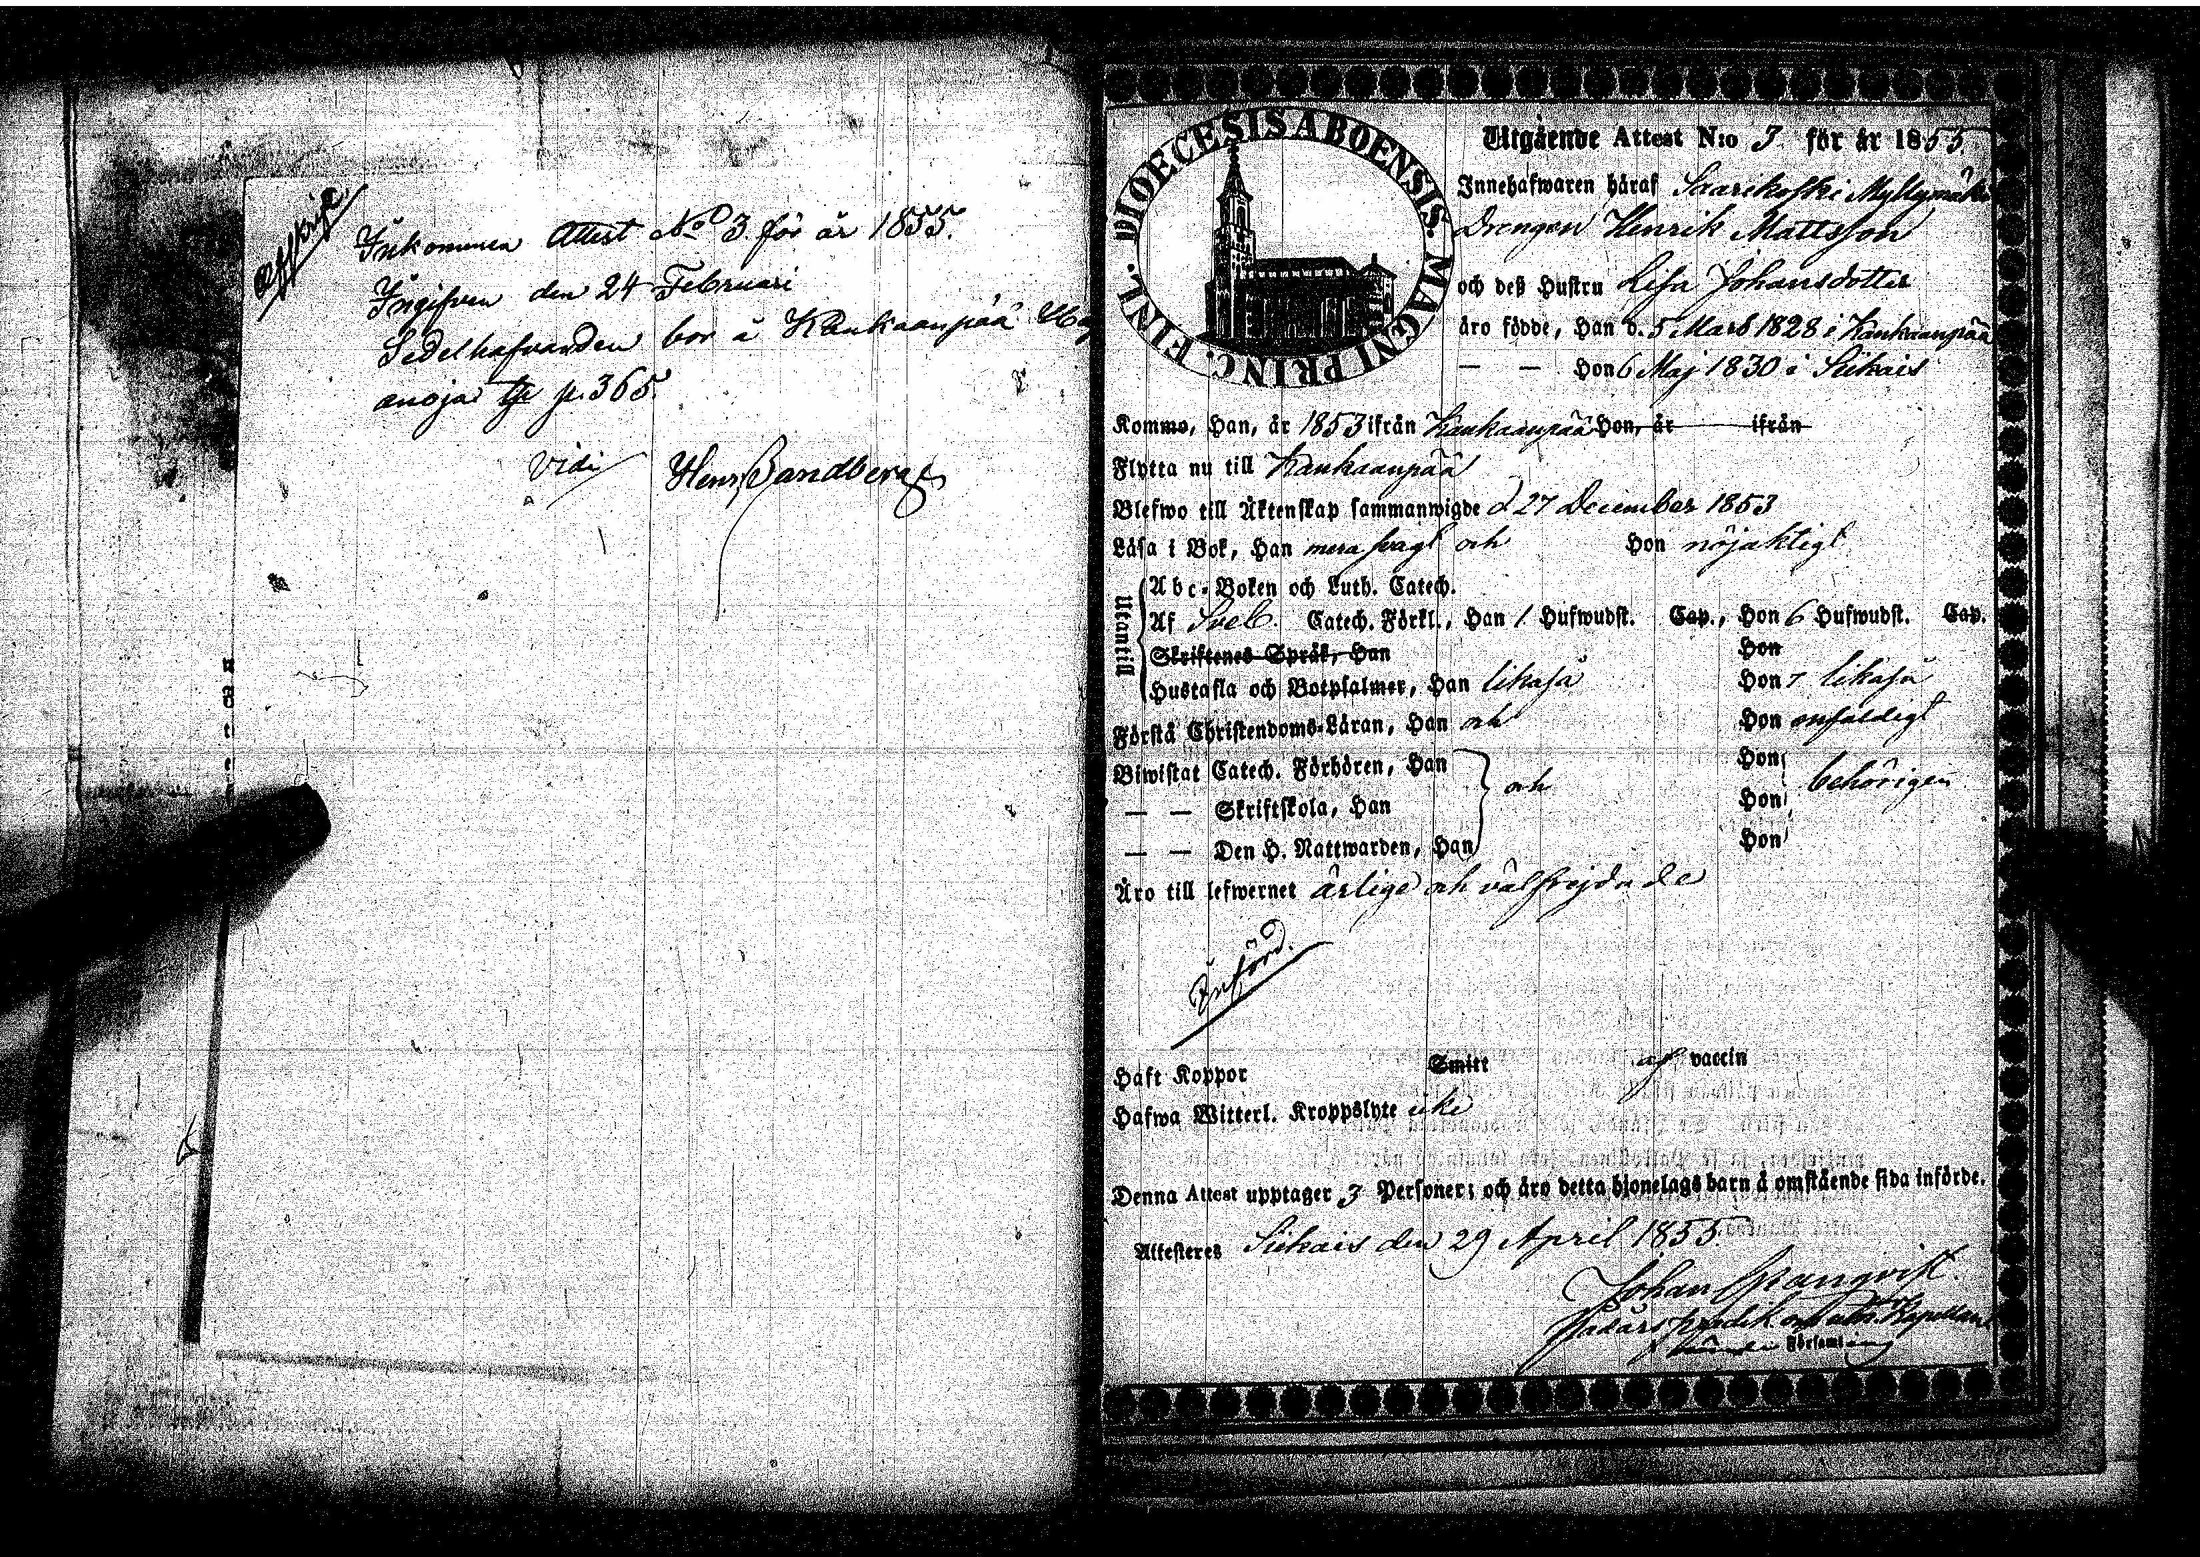 Afskrift
Inkommen Attest No 3. för år 1855.
Ingifven den 24 Februari
Sedelhafvanden bor å Kankaanpää
anoja p. 365.
Vidi Henr. Sandberg
DIOECESIS ABOENSIS. MAGNI PRINC. FINL.
Utgående Attest N:o 3 för år 1855
Innehafwaren häraf Saarikoski Myllymäki
Drengen Henrik Mattsson
och deß Hustru Lisa Johansdotter
äro födde, Han d. 5 Mars 1828 i Kankaanpää
— — Hon 6 Maj 1830 i Siikais
Kommo, Han, år 1853 ifrån Kankaanpää Hon, år ifrån
Flytta nu till Kankaanpää
Blefwo till Äktenskap sammanwigde d 27 December 1853
Läsa i Bok, Han mera svagt och Hon nöjaktigt
Utantill
Abc-Boken och Luth. Catech.
Af Sveb. Catech. Förkl., Han 1 Hufwudst. Cap., Hon 6 Hufwudst. Cap.
Skriftenes Språk, Han Hon
Hustafla och Botpsalmer, Han likaså Hon likaså
Förstå Christendoms-Läran, Han och Hon enfaldigt
Biwistat Catech. Förhören, Han Hon
och behörigen
— — Skriftskola, Han Hon
— — Den H. Nattwarden, Han Hon
Äro till lefwernet ärlige och välfrejdade
Införd.
Haft Koppor Smitt af vaccin
Hafwa Witterl. Kroppslyte icke
Denna Attest upptager 3 Personer; och äro detta hjonelags barn å omstående sida införde.
Attesteras Siikais den 29 April 1855
Johan Granqvist.
Kapellan
Församling